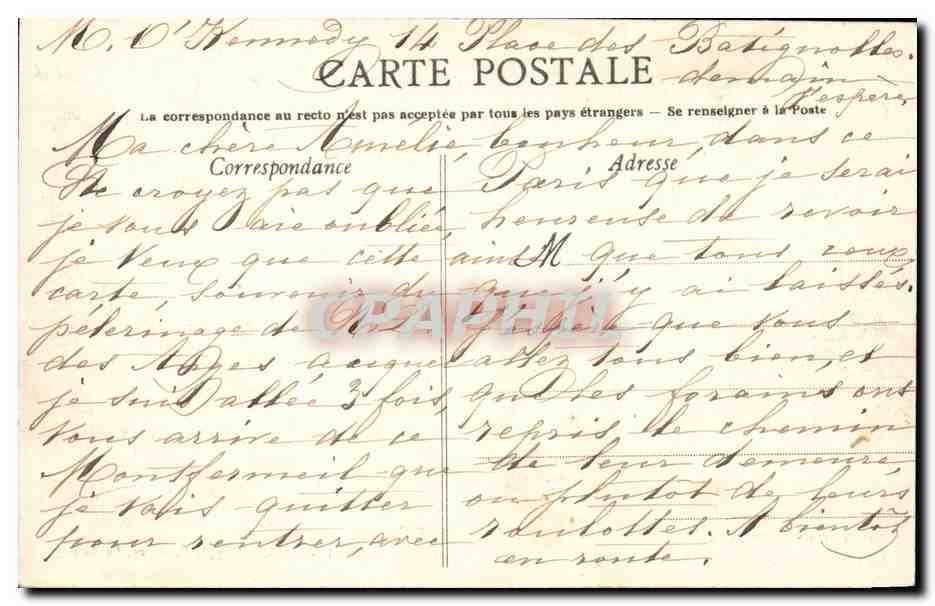 M. O'Kennedy 14 Place des Batignolles.
CARTE POSTALE
demain
j'espère,
La correspondance au recto n'est pas acceptée par tous les pays étrangers — Se renseigner à la Poste
Ma chère Amélie,
Correspondance
Ne croyez pas que
je vous aie oubliée,
je veux que cette
carte, souvenir du
pèlerinage de N. D.
des Anges auquel
je suis allée 3 fois,
vous arrive de ce
Montfermeil que
je vais quitter
pour rentrer, avec
bonheur, dans ce
Adresse
Paris que je serai
heureuse de revoir
ainsi que tous ceux
M
que j'y ai laissés.
J'espère que vous
allez tous bien, et
que les forains ont
repris le chemin
de leur demeure,
ou plutôt de leurs
roulottes. A bientôt
en route.
CRAPHIL